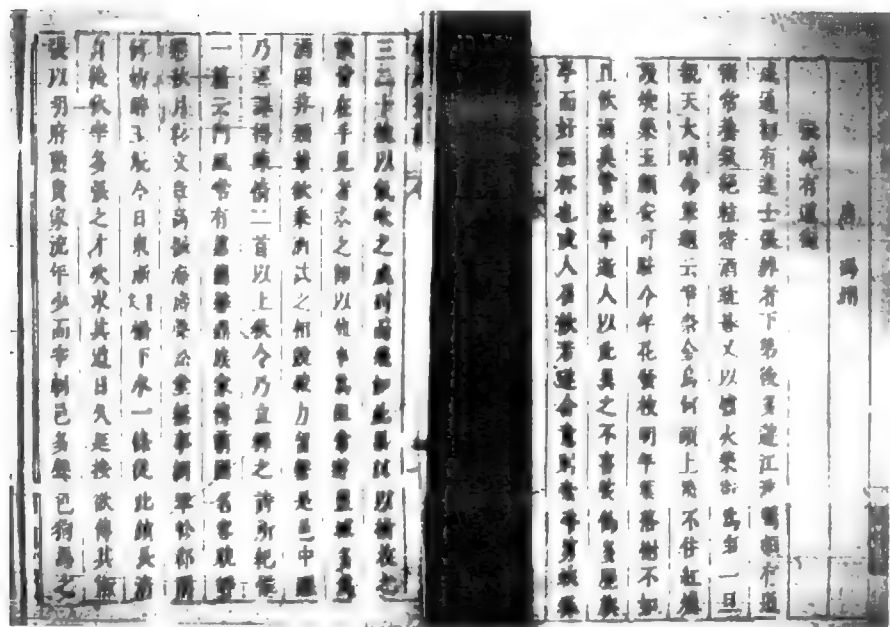 唐 馮翊
張綽有道術
咸通初有進士張綽者下第後多遊江淮間頗有道
術常養氣絕粒嗜酒耽棋又以爐火藥術為事一旦
覩天大哂命筆題云爭奈金烏何頭上飛不住紅爐
謾燒藥玉顏安可駐今年花發枝明年葉落樹不如
且飲酒莫管流年逝人以此異之不喜裝飾多歷旗
亭而好酒杯也或人召飲若遂合意則索紙剪蛺蝶
三二十枚以氣吹之成列而飛如此累刻以指收之
俄皆在手見者求之即以他事為阻嘗遊鹽城多為
酒困非類輩欲乘酒試之相競較力留繫是邑中醒
乃述課得陳情二首以上狄令乃立釋之詩所紀惟
一篇云門風常有蕙蘭馨鼎族家傳霸國名容貌靜
懸秋月彩文章高振海濤聲訟堂無事調琴軫郡閣
何妨醉玉觥今日東漸橋下水一條從此鎮長清
自後狄宰多張之才次求其道日久延接欲傳其術
張以明府勳貴家流年少而宰劇邑多聲色狗馬之